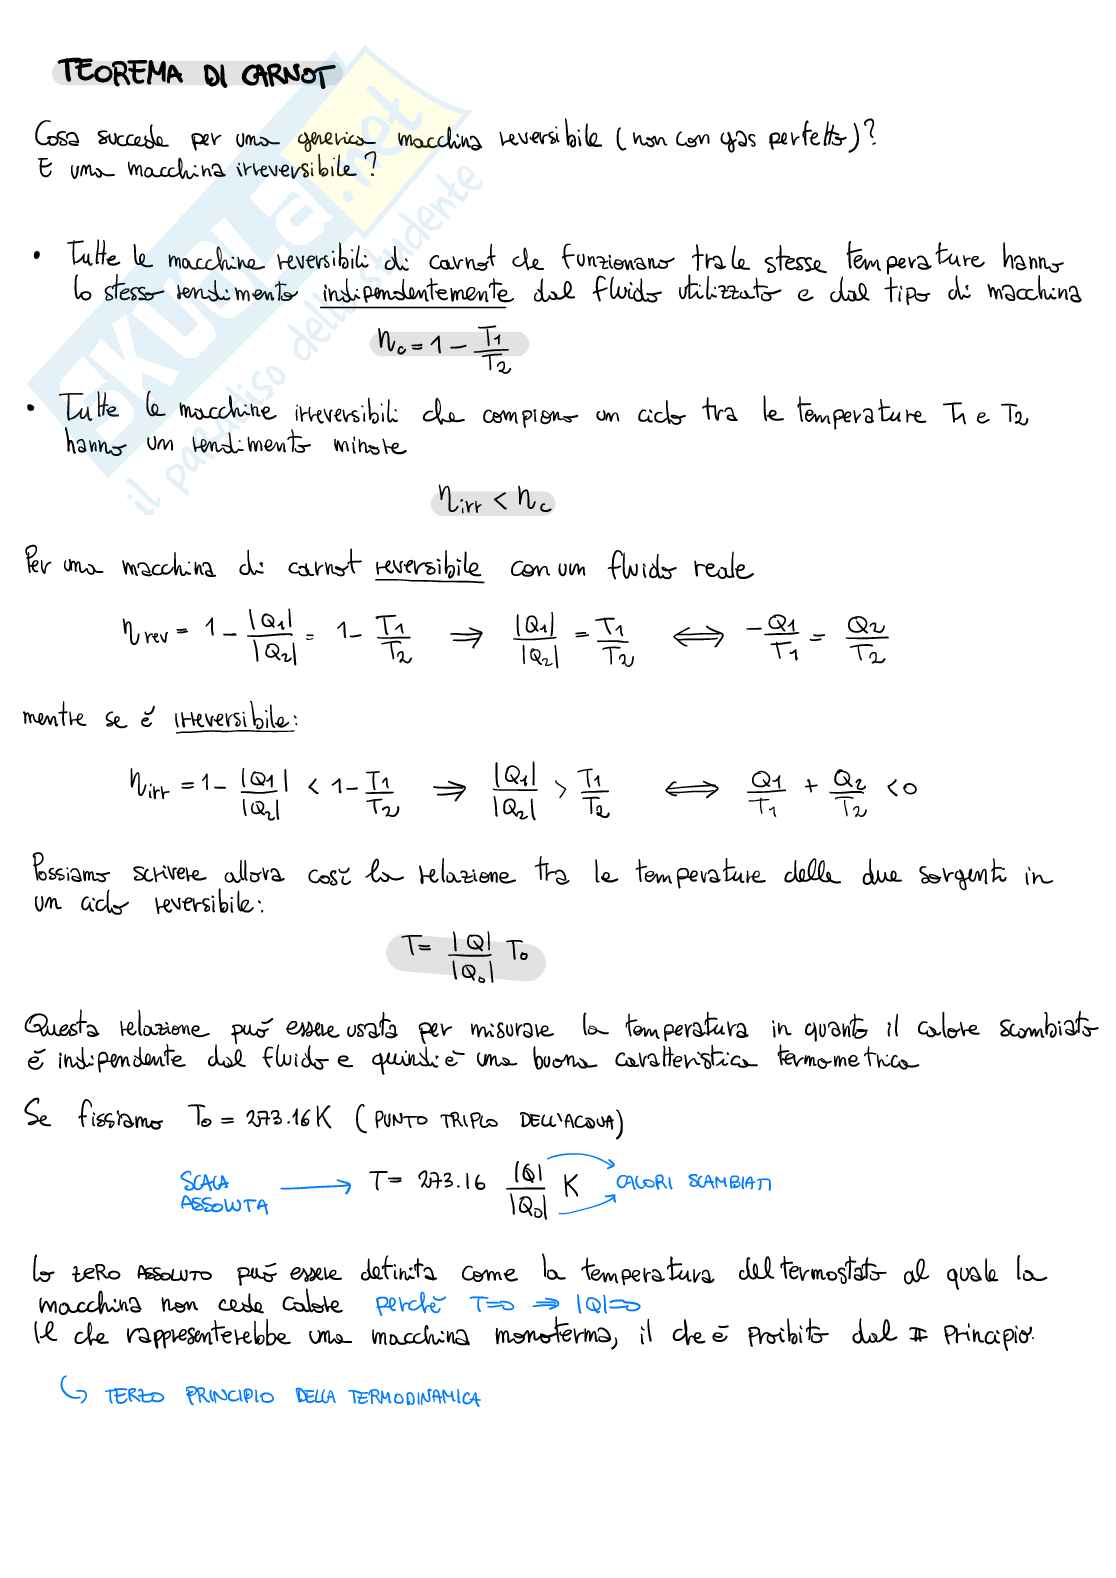 TEOREMA DI CARNOT
Cosa succede per una generica macchina reversibile (non con gas perfetto)?
E una macchina irreversibile?
• Tutte le macchine reversibili di carnot che funzionano tra le stesse temperature hanno
lo stesso rendimento indipendentemente dal fluido utilizzato e dal tipo di macchina
η_c = 1 - T1/T2
• Tutte le macchine irreversibili che compiono un ciclo tra le temperature T1 e T2
hanno un rendimento minore
η_irr < η_c
Per una macchina di carnot reversibile con un fluido reale
η_rev = 1 - |Q1|/|Q2| = 1 - T1/T2 ⇒ |Q1|/|Q2| = T1/T2 ⟺ -Q1/T1 = Q2/T2
mentre se è irreversibile:
η_irr = 1 - |Q1|/|Q2| < 1 - T1/T2 ⇒ |Q1|/|Q2| > T1/T2 ⟺ Q1/T1 + Q2/T2 < 0
Possiamo scrivere allora così la relazione tra le temperature delle due sorgenti in
un ciclo reversibile:
T = |Q|/|Q0| T0
Questa relazione può essere usata per misurare la temperatura in quanto il calore scambiato
è indipendente dal fluido e quindi è una buona caratteristica termometrica
Se fissiamo T0 = 273.16 K (PUNTO TRIPLO DELL'ACQUA)
SCALA ASSOLUTA → T = 273.16 |Q|/|Q0| K CALORI SCAMBIATI
lo ZERO ASSOLUTO può essere definita come la temperatura del termostato al quale la
macchina non cede calore perchè T=0 ⇒ |Q|=0
Il che rappresenterebbe una macchina monoterma, il che è proibito dal II Principio.
↳ TERZO PRINCIPIO DELLA TERMODINAMICA
SKUOLA.net
il paradiso dello studente